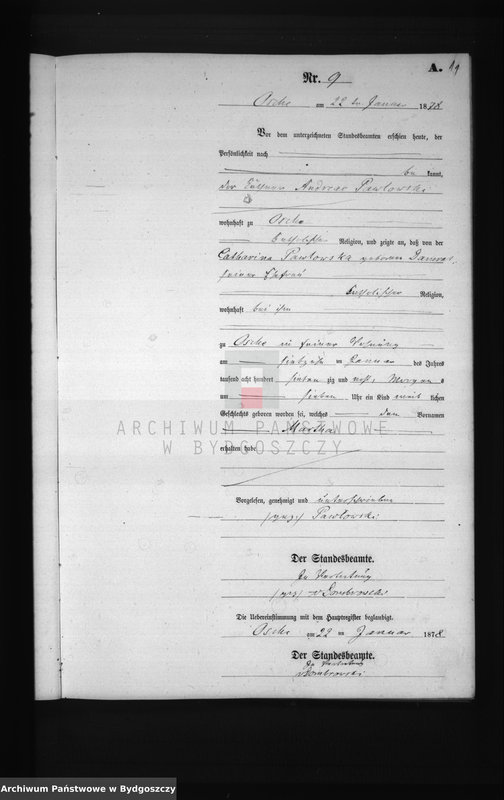 A. 19
Nr. 9
Osche am 22 ten Januar 1878
Vor dem unterzeichneten Standesbeamten erschien heute, der
Persönlichkeit nach
be kannt,
der Andreas Pawlowski
wohnhaft zu Osche
katholischer Religion, und zeigte an, daß von der
Catharina Pawlowska geborenen
seiner Ehefrau
katholischer Religion,
wohnhaft bei ihm
zu Osche in seiner Wohnung
am ten Januar des Jahres
tausend acht hundert sieben zig und acht, Morgens
um sieben Uhr ein Kind weib lichen
Geschlechts geboren worden sei, welches den Vornamen
Martha
erhalten habe
ARCHIWUM PAŃSTWOWE
W BYDGOSZCZY
Vorgelesen, genehmigt und unterschrieben
(gez) Pawlowski
Der Standesbeamte.
In Vertretung
(gez) v Dombrowski
Die Uebereinstimmung mit dem Hauptregister beglaubigt.
Osche am 22 ten Januar 1878
Der Standesbeamte.
In Vertretung
v Dombrowski
Archiwum Państwowe w Bydgoszczy